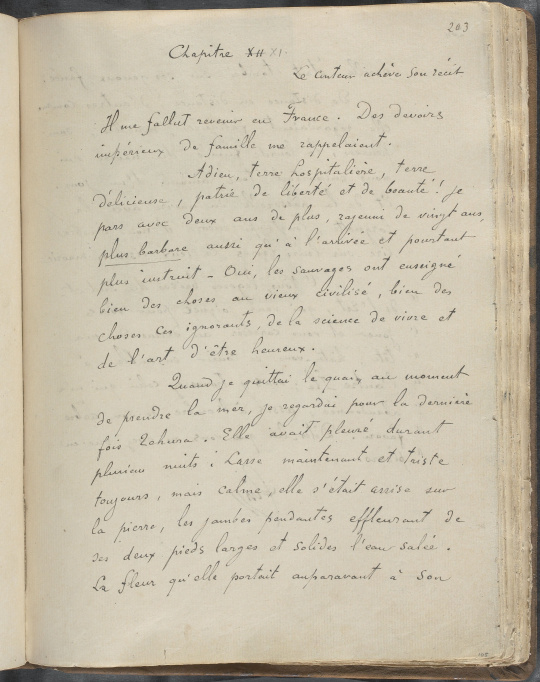 203
Chapitre XII XI
Le conteur achève son récit
Il me fallut revenir en France. Des devoirs
impérieux de famille me rappelaient.
Adieu, terre hospitalière, terre
délicieuse, patrie de liberté et de beauté! Je
pars avec deux ans de plus, rajeuni de vingt ans,
plus barbare aussi qu'à l'arrivée et pourtant
plus instruit - Oui, les sauvages ont enseigné
bien des choses au vieux civilisé, bien des
choses. Ces ignorants, de la science de vivre et
de l'art d'être heureux.
Quand je quittai le quai, au moment
de prendre la mer, je regardai pour la dernière
fois Tehura. Elle avait pleuré durant
plusieurs nuits: Lasse maintenant et triste
toujours, mais calme, elle s'était assise sur
la pierre, les jambes pendantes effleurant de
ses deux pieds larges et solides l'eau salée.
La fleur qu'elle portait auparavant à son